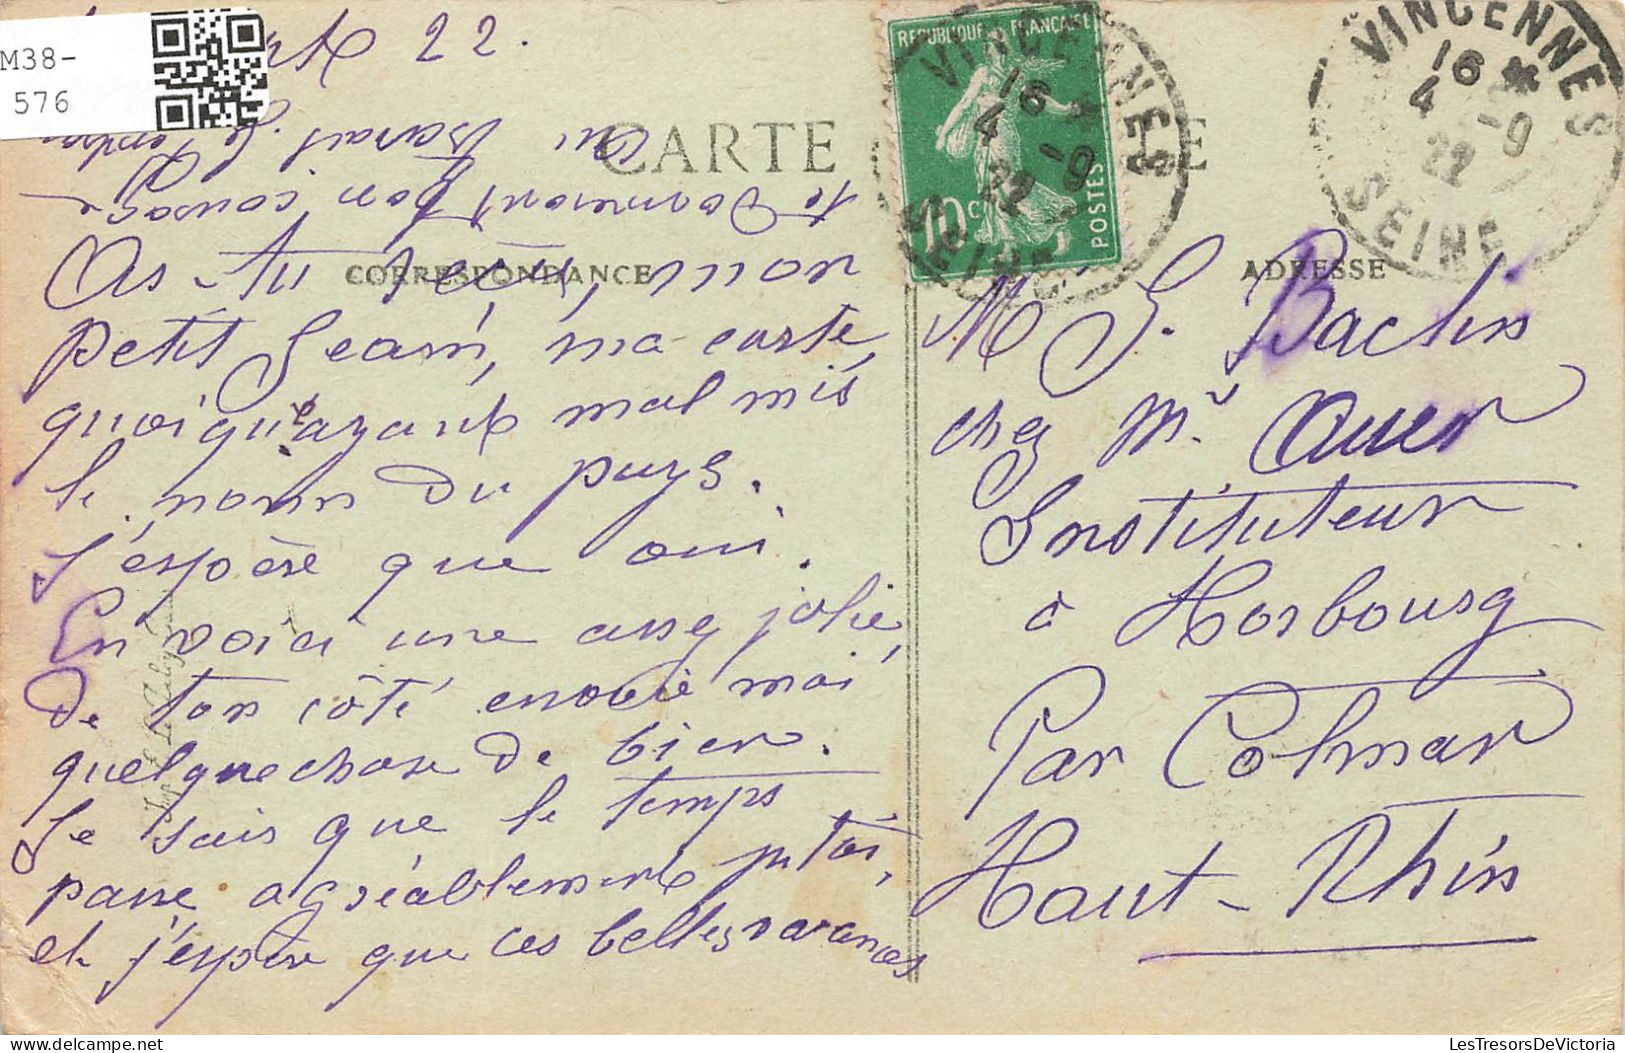 M38-
576
22.
CARTE
CORRESPONDANCE
ADRESSE
REPUBLIQUE FRANÇAISE
10c
POSTES
VINCENNES
16
4 -9
22
SEINE
VINCENNES
16 *
4 -9
22
SEINE
te donneront bon courage
As-tu reçu, mon
petit Jean, ma carte,
quoiqu'ayant mal mis
le nom du pays.
J'espère que oui.
En voici une assez jolie,
de ton côté envoie moi
quelque chose de bien.
Je sais que le temps
passe agréablement pr toi,
et j'espère que ces belles vacances
M J. Bachin
chez Mr Auer
Instituteur
à Horbourg
Par Colmar
Haut-Rhin
LesTresorsDeVictoria